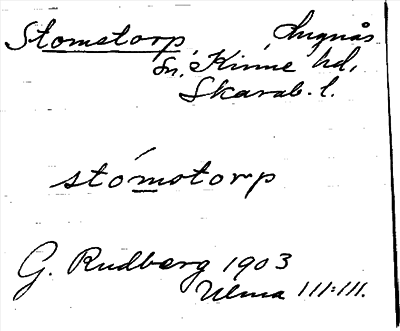 Stomstorp Lugnås
Sn, Kinne hd,
Skarab. l.
stómstorp
G. Rudberg 1903
Ulma 111:111.